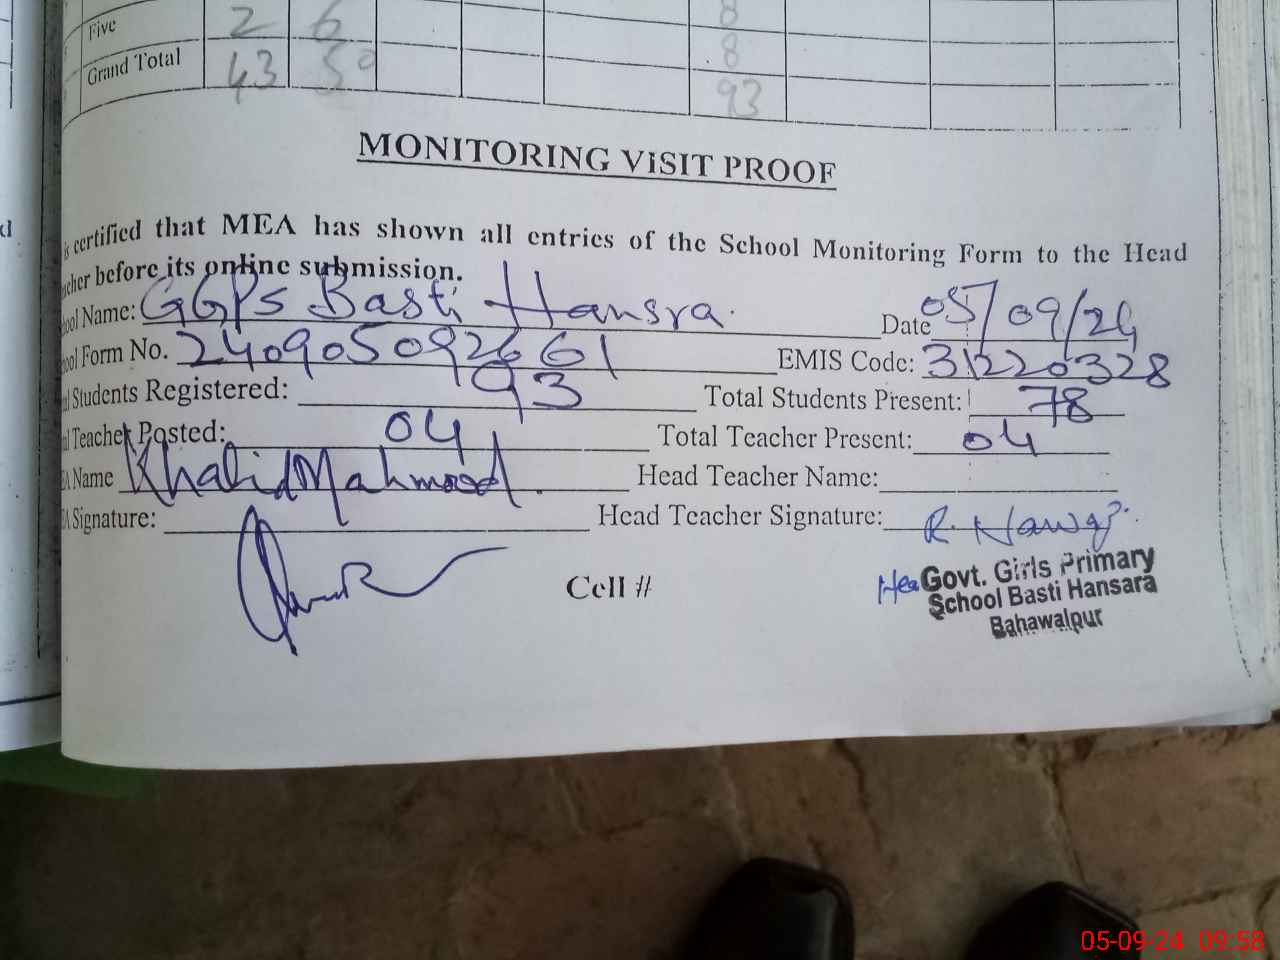 Five 2 6 8
Grand Total 43 50 8
93
MONITORING VISIT PROOF
is certified that MEA has shown all entries of the School Monitoring Form to the Head
cher before its online submission.
ool Name: GGPS Basti Hansra. Date 05/09/24
ool Form No. 240905092661 EMIS Code: 31220328
l Students Registered: 93 Total Students Present: 78
l Teacher Posted: 04 Total Teacher Present: 04
EA Name Khalid Mahmood. Head Teacher Name:
EA Signature: Head Teacher Signature: R. Nawaz
Cell #
Hea Govt. Girls Primary
School Basti Hansara
Bahawalpur
05-09-24 09:58